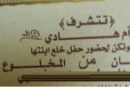 ﴿تتشرف﴾
أم هادي
لحضور حفل خلع ابنتها
من المخلوع